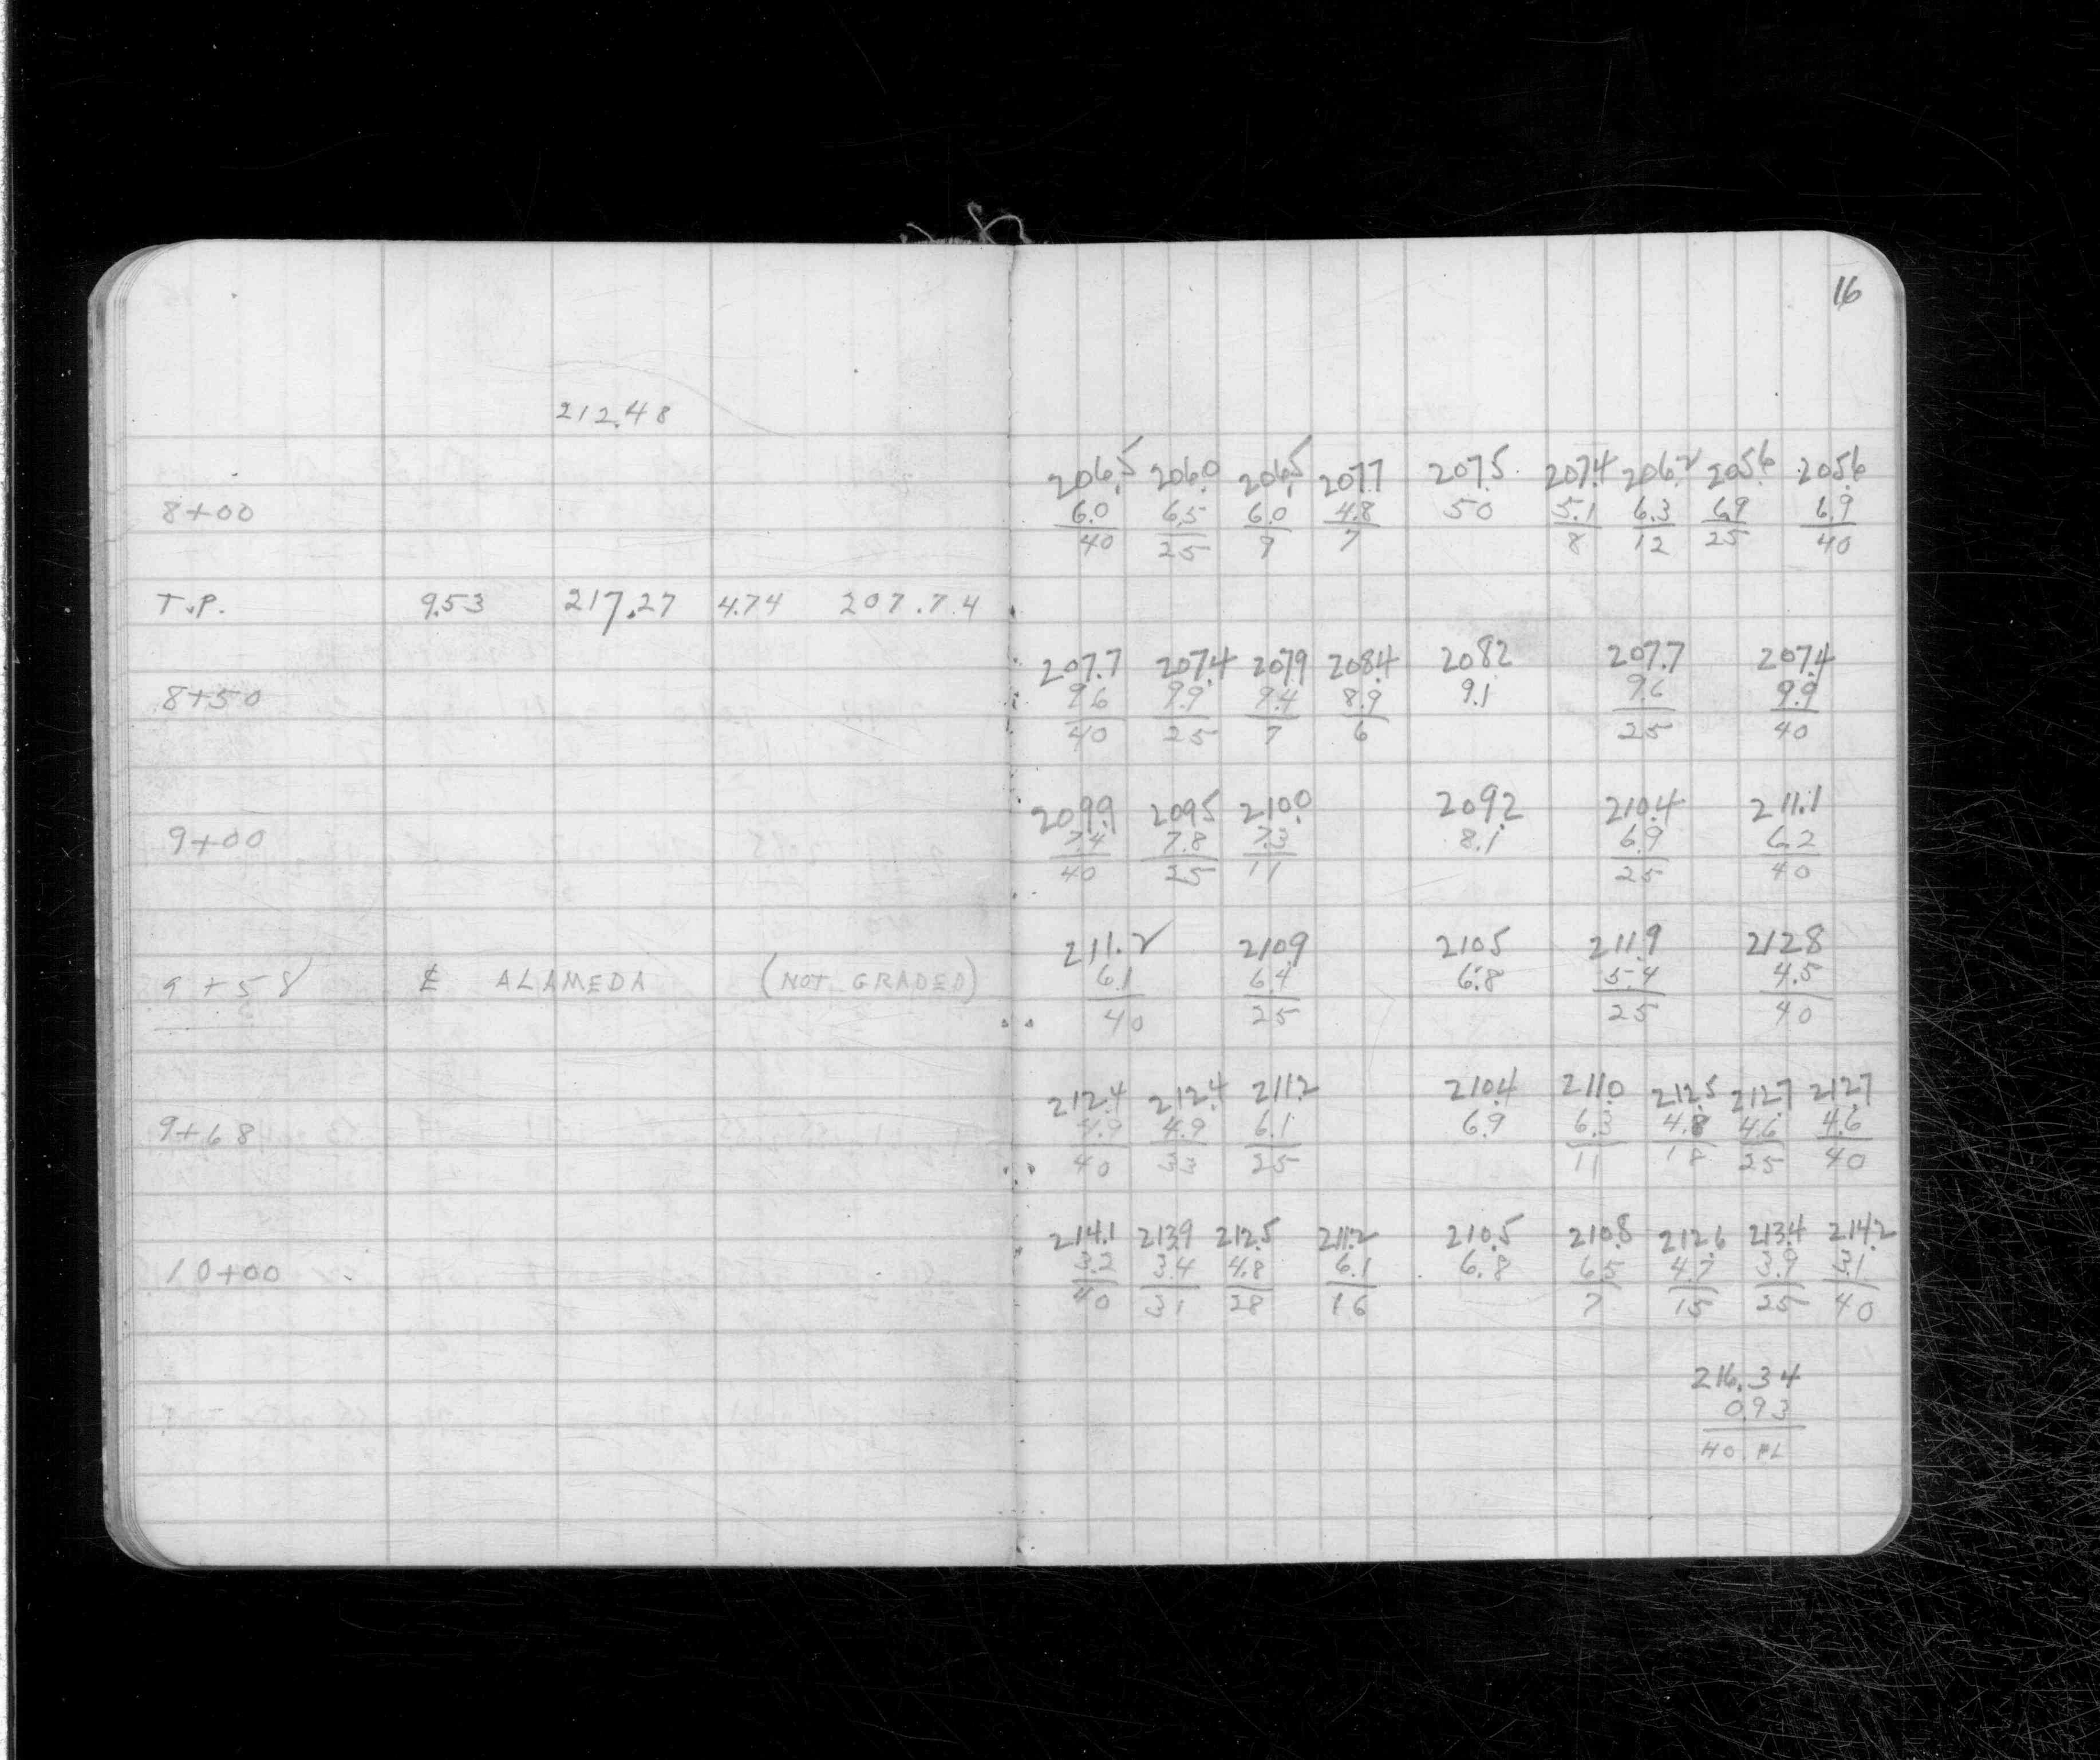 16
212.48
206.5 206.0 206.5 207.7 207.5 207.4 206.2 205.6 205.6
8+00 6.0 6.5 6.0 4.8 5.0 5.1 6.3 6.9 6.9
40 25 9 7 8 12 25 40
T.P. 9.53 217.27 4.74 207.74
207.7 207.4 207.9 208.4 208.2 207.7 207.4
8+50 9.6 9.9 9.4 8.9 9.1 9.6 9.9
40 25 7 6 25 40
209.9 209.5 210.0 209.2 210.4 211.1
9+00 7.4 7.8 7.3 8.1 6.9 6.2
40 25 11 25 40
211.2 210.9 210.5 211.9 212.8
9+58 ℄ ALAMEDA (NOT GRADED) 6.1 6.4 6.8 5.4 4.5
40 25 25 40
212.4 212.4 211.2 210.4 211.0 212.5 212.7 212.7
9+68 4.9 4.9 6.1 6.9 6.3 4.8 4.6 4.6
40 33 25 11 18 25 40
214.1 213.9 212.5 211.2 210.5 210.8 212.6 213.4 214.2
10+00 3.2 3.4 4.8 6.1 6.8 6.5 4.7 3.9 3.1
40 31 28 16 7 15 25 40
216.34
0.93
40 PL